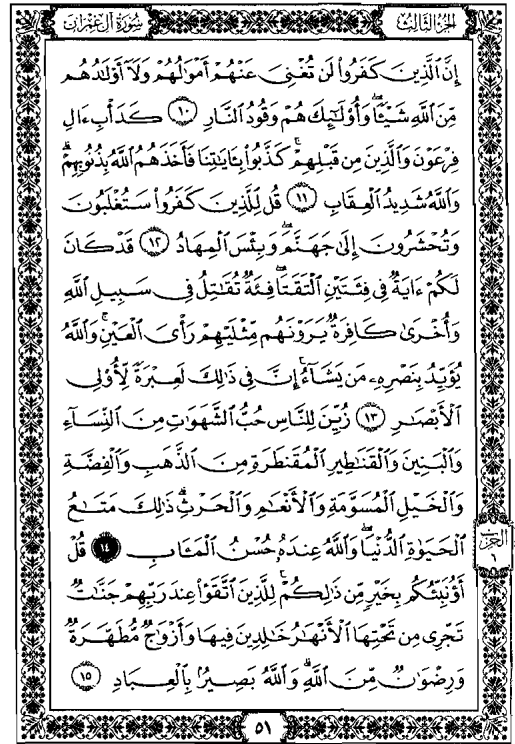 سُورَةُ آلِ عِمْرَانَ
الجُزْءُ الثَّالِثُ
إِنَّ ٱلَّذِينَ كَفَرُواْ لَن تُغْنِىَ عَنْهُمْ أَمْوَٰلُهُمْ وَلَآ أَوْلَٰدُهُم
مِّنَ ٱللَّهِ شَيْـًٔا ۖ وَأُوْلَٰٓئِكَ هُمْ وَقُودُ ٱلنَّارِ ١٠ كَدَأْبِ ءَالِ
فِرْعَوْنَ وَٱلَّذِينَ مِن قَبْلِهِمْ ۚ كَذَّبُواْ بِـَٔايَٰتِنَا فَأَخَذَهُمُ ٱللَّهُ بِذُنُوبِهِمْ ۗ
وَٱللَّهُ شَدِيدُ ٱلْعِقَابِ ١١ قُل لِّلَّذِينَ كَفَرُواْ سَتُغْلَبُونَ
وَتُحْشَرُونَ إِلَىٰ جَهَنَّمَ ۚ وَبِئْسَ ٱلْمِهَادُ ١٢ قَدْ كَانَ
لَكُمْ ءَايَةٌ فِى فِئَتَيْنِ ٱلْتَقَتَا ۖ فِئَةٌ تُقَٰتِلُ فِى سَبِيلِ ٱللَّهِ
وَأُخْرَىٰ كَافِرَةٌ يَرَوْنَهُم مِّثْلَيْهِمْ رَأْىَ ٱلْعَيْنِ ۚ وَٱللَّهُ
يُؤَيِّدُ بِنَصْرِهِۦ مَن يَشَآءُ ۗ إِنَّ فِى ذَٰلِكَ لَعِبْرَةً لِّأُوْلِى
ٱلْأَبْصَٰرِ ١٣ زُيِّنَ لِلنَّاسِ حُبُّ ٱلشَّهَوَٰتِ مِنَ ٱلنِّسَآءِ
وَٱلْبَنِينَ وَٱلْقَنَٰطِيرِ ٱلْمُقَنطَرَةِ مِنَ ٱلذَّهَبِ وَٱلْفِضَّةِ
وَٱلْخَيْلِ ٱلْمُسَوَّمَةِ وَٱلْأَنْعَٰمِ وَٱلْحَرْثِ ۗ ذَٰلِكَ مَتَٰعُ
ٱلْحَيَوٰةِ ٱلدُّنْيَا ۖ وَٱللَّهُ عِندَهُۥ حُسْنُ ٱلْمَـَٔابِ ١٤ قُلْ
أَؤُنَبِّئُكُم بِخَيْرٍ مِّن ذَٰلِكُمْ ۚ لِلَّذِينَ ٱتَّقَوْاْ عِندَ رَبِّهِمْ جَنَّٰتٌ
تَجْرِى مِن تَحْتِهَا ٱلْأَنْهَٰرُ خَٰلِدِينَ فِيهَا وَأَزْوَٰجٌ مُّطَهَّرَةٌ
وَرِضْوَٰنٌ مِّنَ ٱللَّهِ ۗ وَٱللَّهُ بَصِيرٌۢ بِٱلْعِبَادِ ١٥
الحزب
٦
٥١